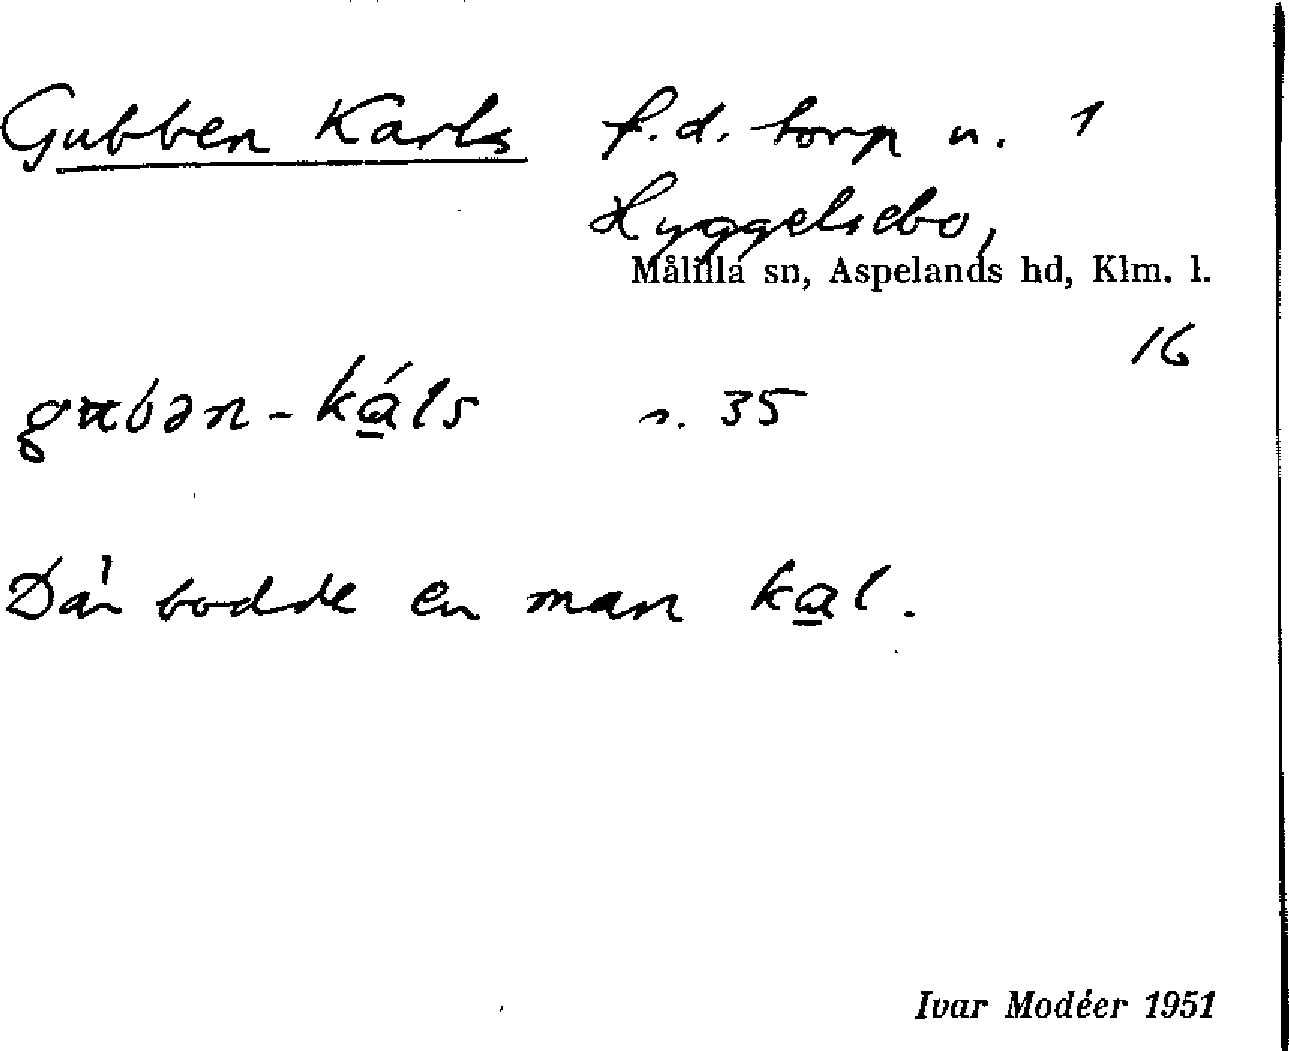 Gubben Karls f.d. torp u. 1
Hyggelsebo,
Målilla sn, Aspelands hd, Klm. l.
16
gubən-káls s. 35
Där bodde en man kal.
Ivar Modéer 1951